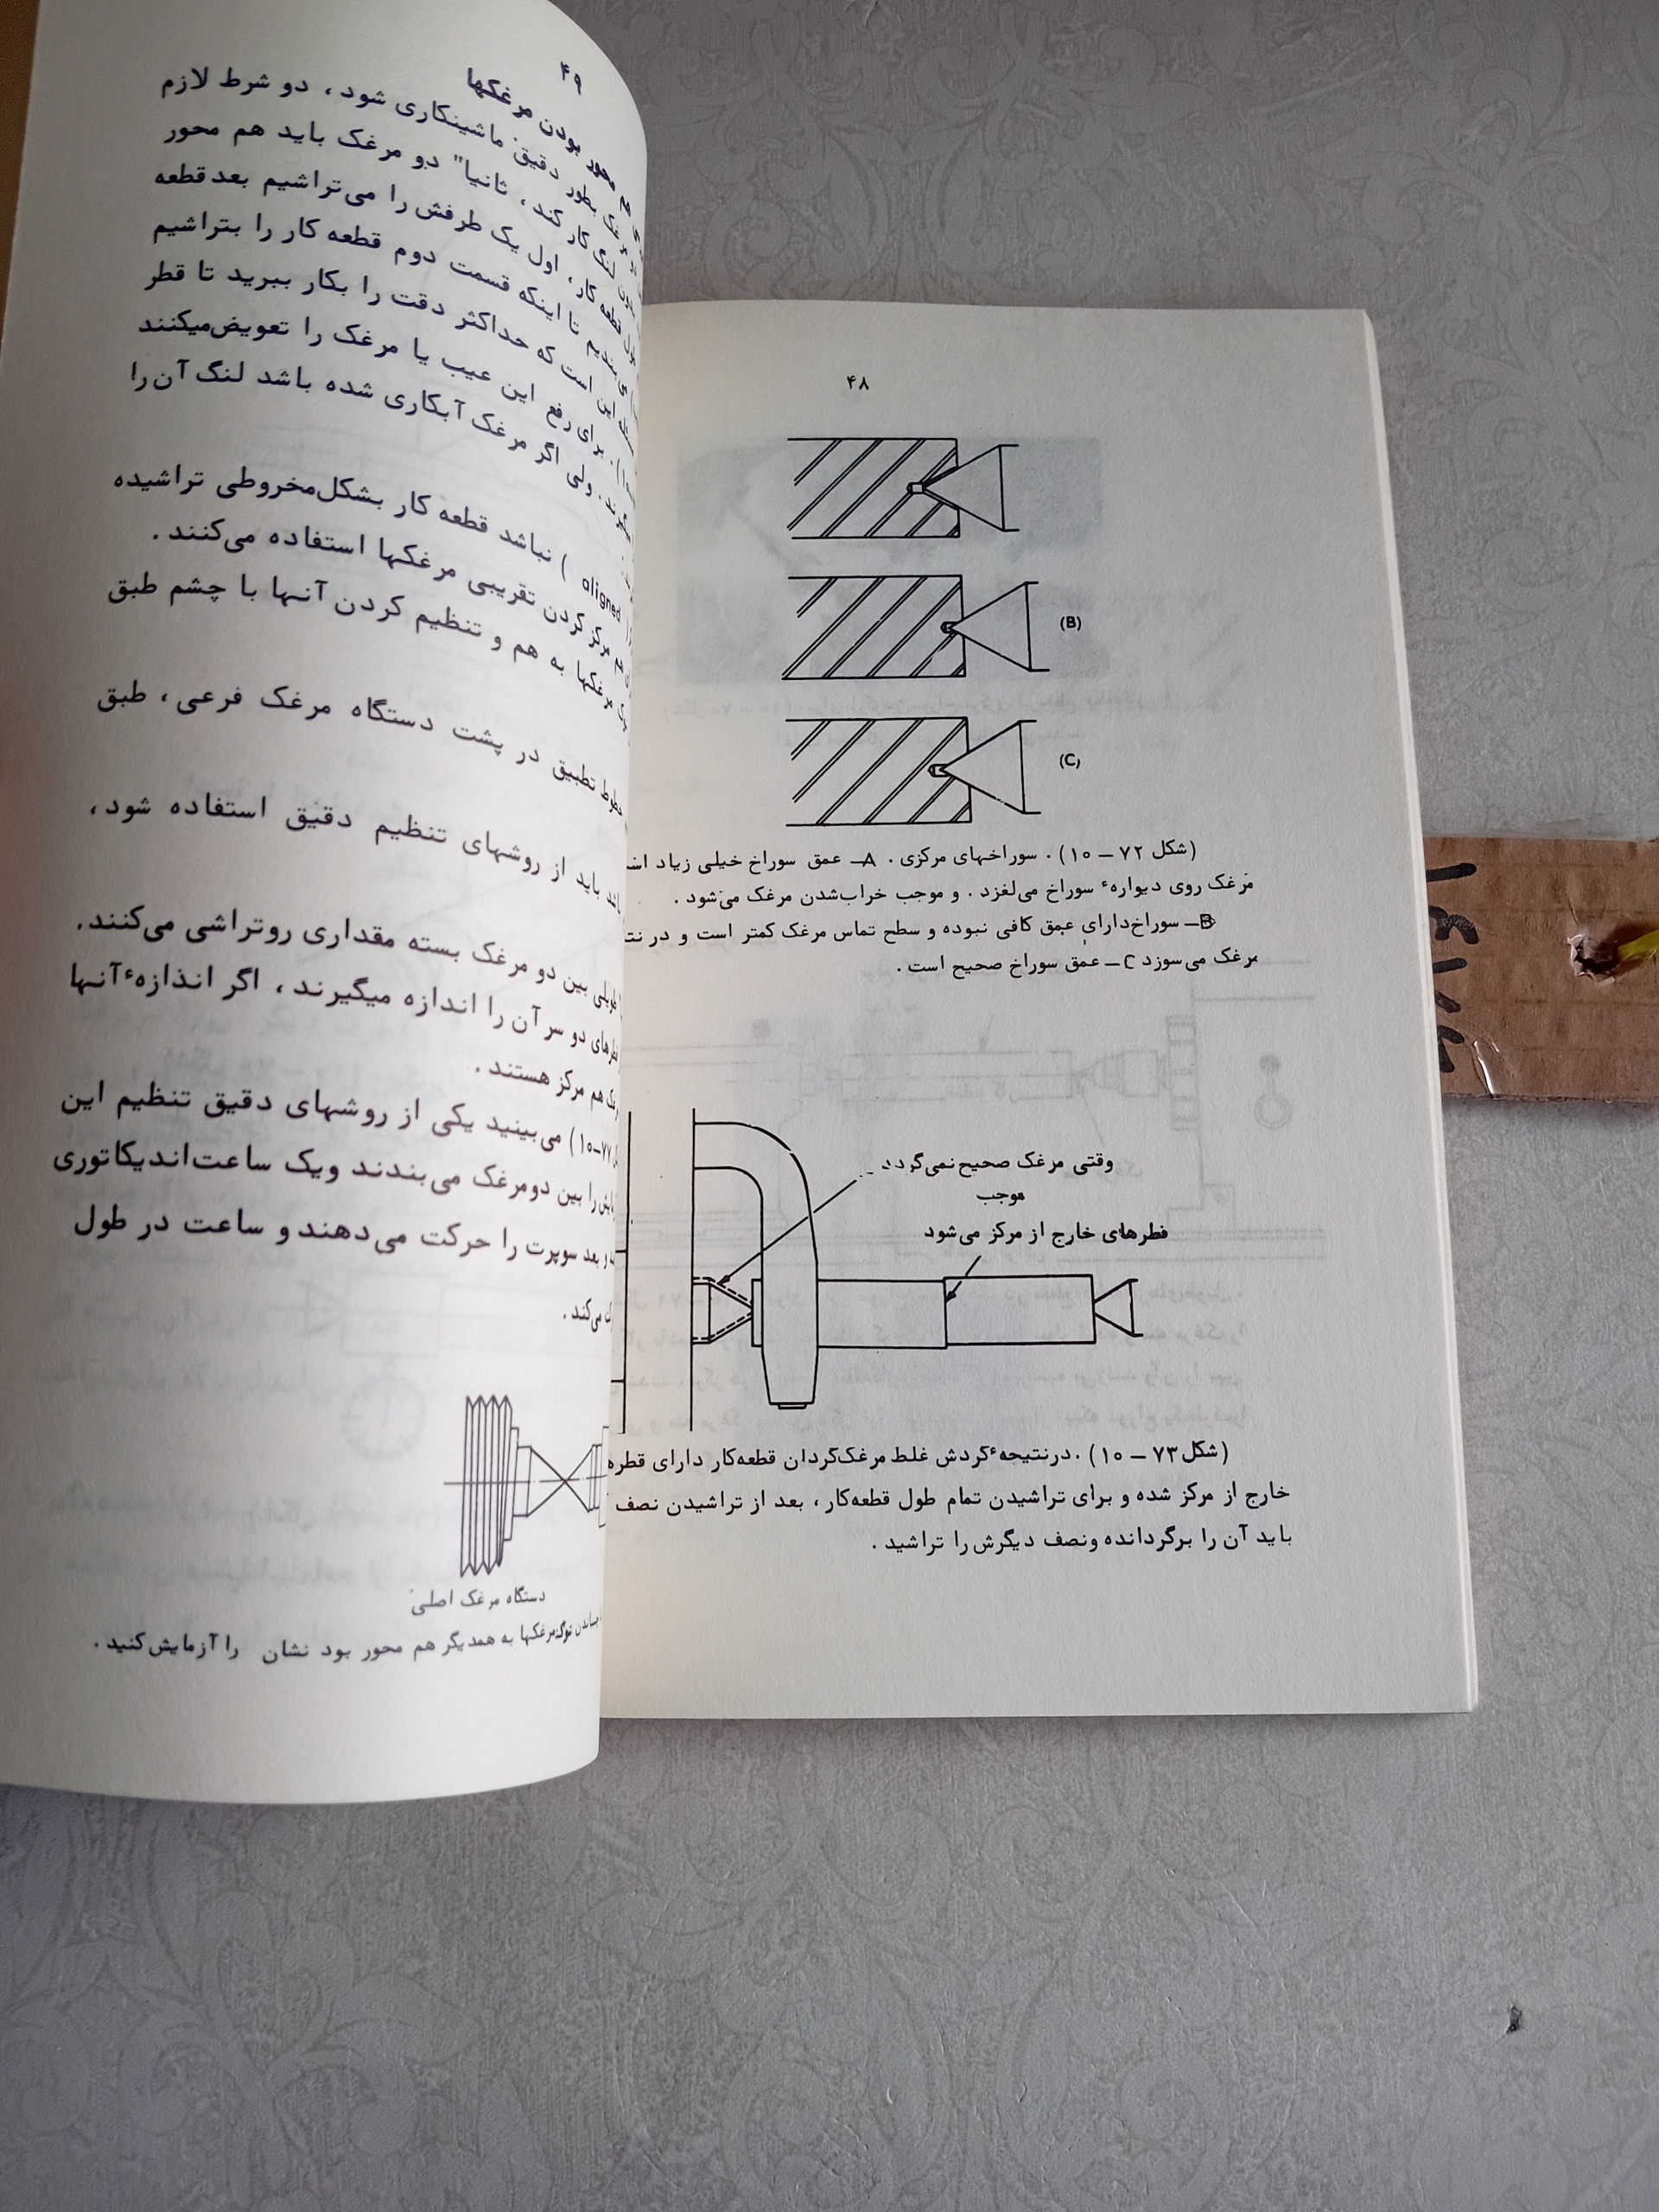 ۴۸
(B)
(C)
(شکل ۷۲ – ۱۰) . سوراخهای مرکزی . A– عمق سوراخ خیلی زیاد
مرغک روی دیوارهٔ سوراخ می‌لغزد . و موجب خراب‌شدن مرغک می‌شود .
B– سوراخ‌دارای عمق کافی نبوده و سطح تماس مرغک کمتر است و در
مرغک می‌سوزد C– عمق سوراخ صحیح است .
وقتی مرغک صحیح
موجب
قطرهای خارج از مرکز می‌شود
(شکل ۷۳ – ۱۰) . درنتیجهٔ گردش غلط مرغک‌گردان قطعه‌کار دارای
خارج از مرکز شده و برای تراشیدن تمام طول قطعه‌کار ، بعد از تراشیدن نصف
باید آن را برگردانده ونصف دیگرش را تراشید .
۴۹
محور بودن مرغکها
بطور دقیق ماشینکاری شود ، دو شرط لازم
لنگ کار کند ، ثانیا" دو مرغک باید هم محور
قطعه کار ، اول یک طرفش را می‌تراشیم بعد قطعه
تا اینکه قسمت دوم قطعه کار را بتراشیم
این است که حداکثر دقت را بکار ببرید تا قطر
برای رفع این عیب یا مرغک را تعویض‌میکنند
ولی اگر مرغک آبکاری شده باشد لنگ آن را
aligned ) نباشد قطعه کار بشکل‌مخروطی تراشیده
مرکز کردن تقریبی مرغکها استفاده می‌کنند .
مرغکها به هم و تنظیم کردن آنها با چشم طبق
خطوط تطبیق در پشت دستگاه مرغک فرعی ، طبق
باید از روشهای تنظیم دقیق استفاده شود ،
طویلی بین دو مرغک بسته مقداری روتراشی می‌کنند.
دو سر آن را اندازه میگیرند ، اگر اندازهٔ آنها
هم مرکز هستند .
۷۷–۱۰) می‌بینید یکی از روشهای دقیق تنظیم این
را بین دومرغک می‌بندند ویک ساعت‌اندیکاتوری
و بعد سوپرت را حرکت می‌دهند و ساعت در طول
می‌کند .
دستگاه مرغک اصلی
نوک‌مرغکها به همدیگر هم محور بود نشان را آزمایش‌کنید .